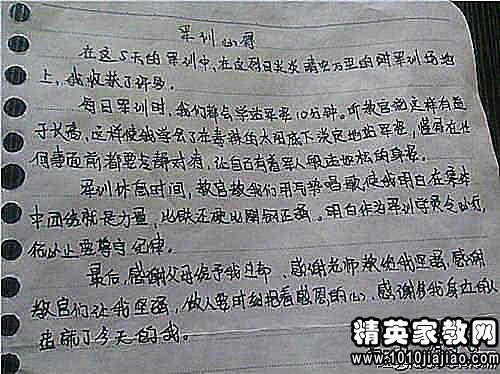 军训心得
在这5天的军训中,在这烈日炎炎晴空万里的附军训场地
上,我收获了许多。
每日军训时,我们都会学站军姿10分钟。听教官说这样有益
于长高,这样使我学会了在毒辣的太阳底下淡定地站军姿,懂得在任
何事面前都要冷静对待,让自己有着军人般
军训休息时间,教官教我们用气势唱歌使我明白在集体
中团结就是力量,比铁还硬比钢还强。明白作为军训学员令必行,
何必止要尊守纪律。
最后,感谢父母给予我生命、感谢老师教给我坚强,感谢
教官们让我坚强,做人要时刻抱着感恩的心,感谢我身边的人
造就了今天的我。
精英家教网
www.1010jiajiao.com